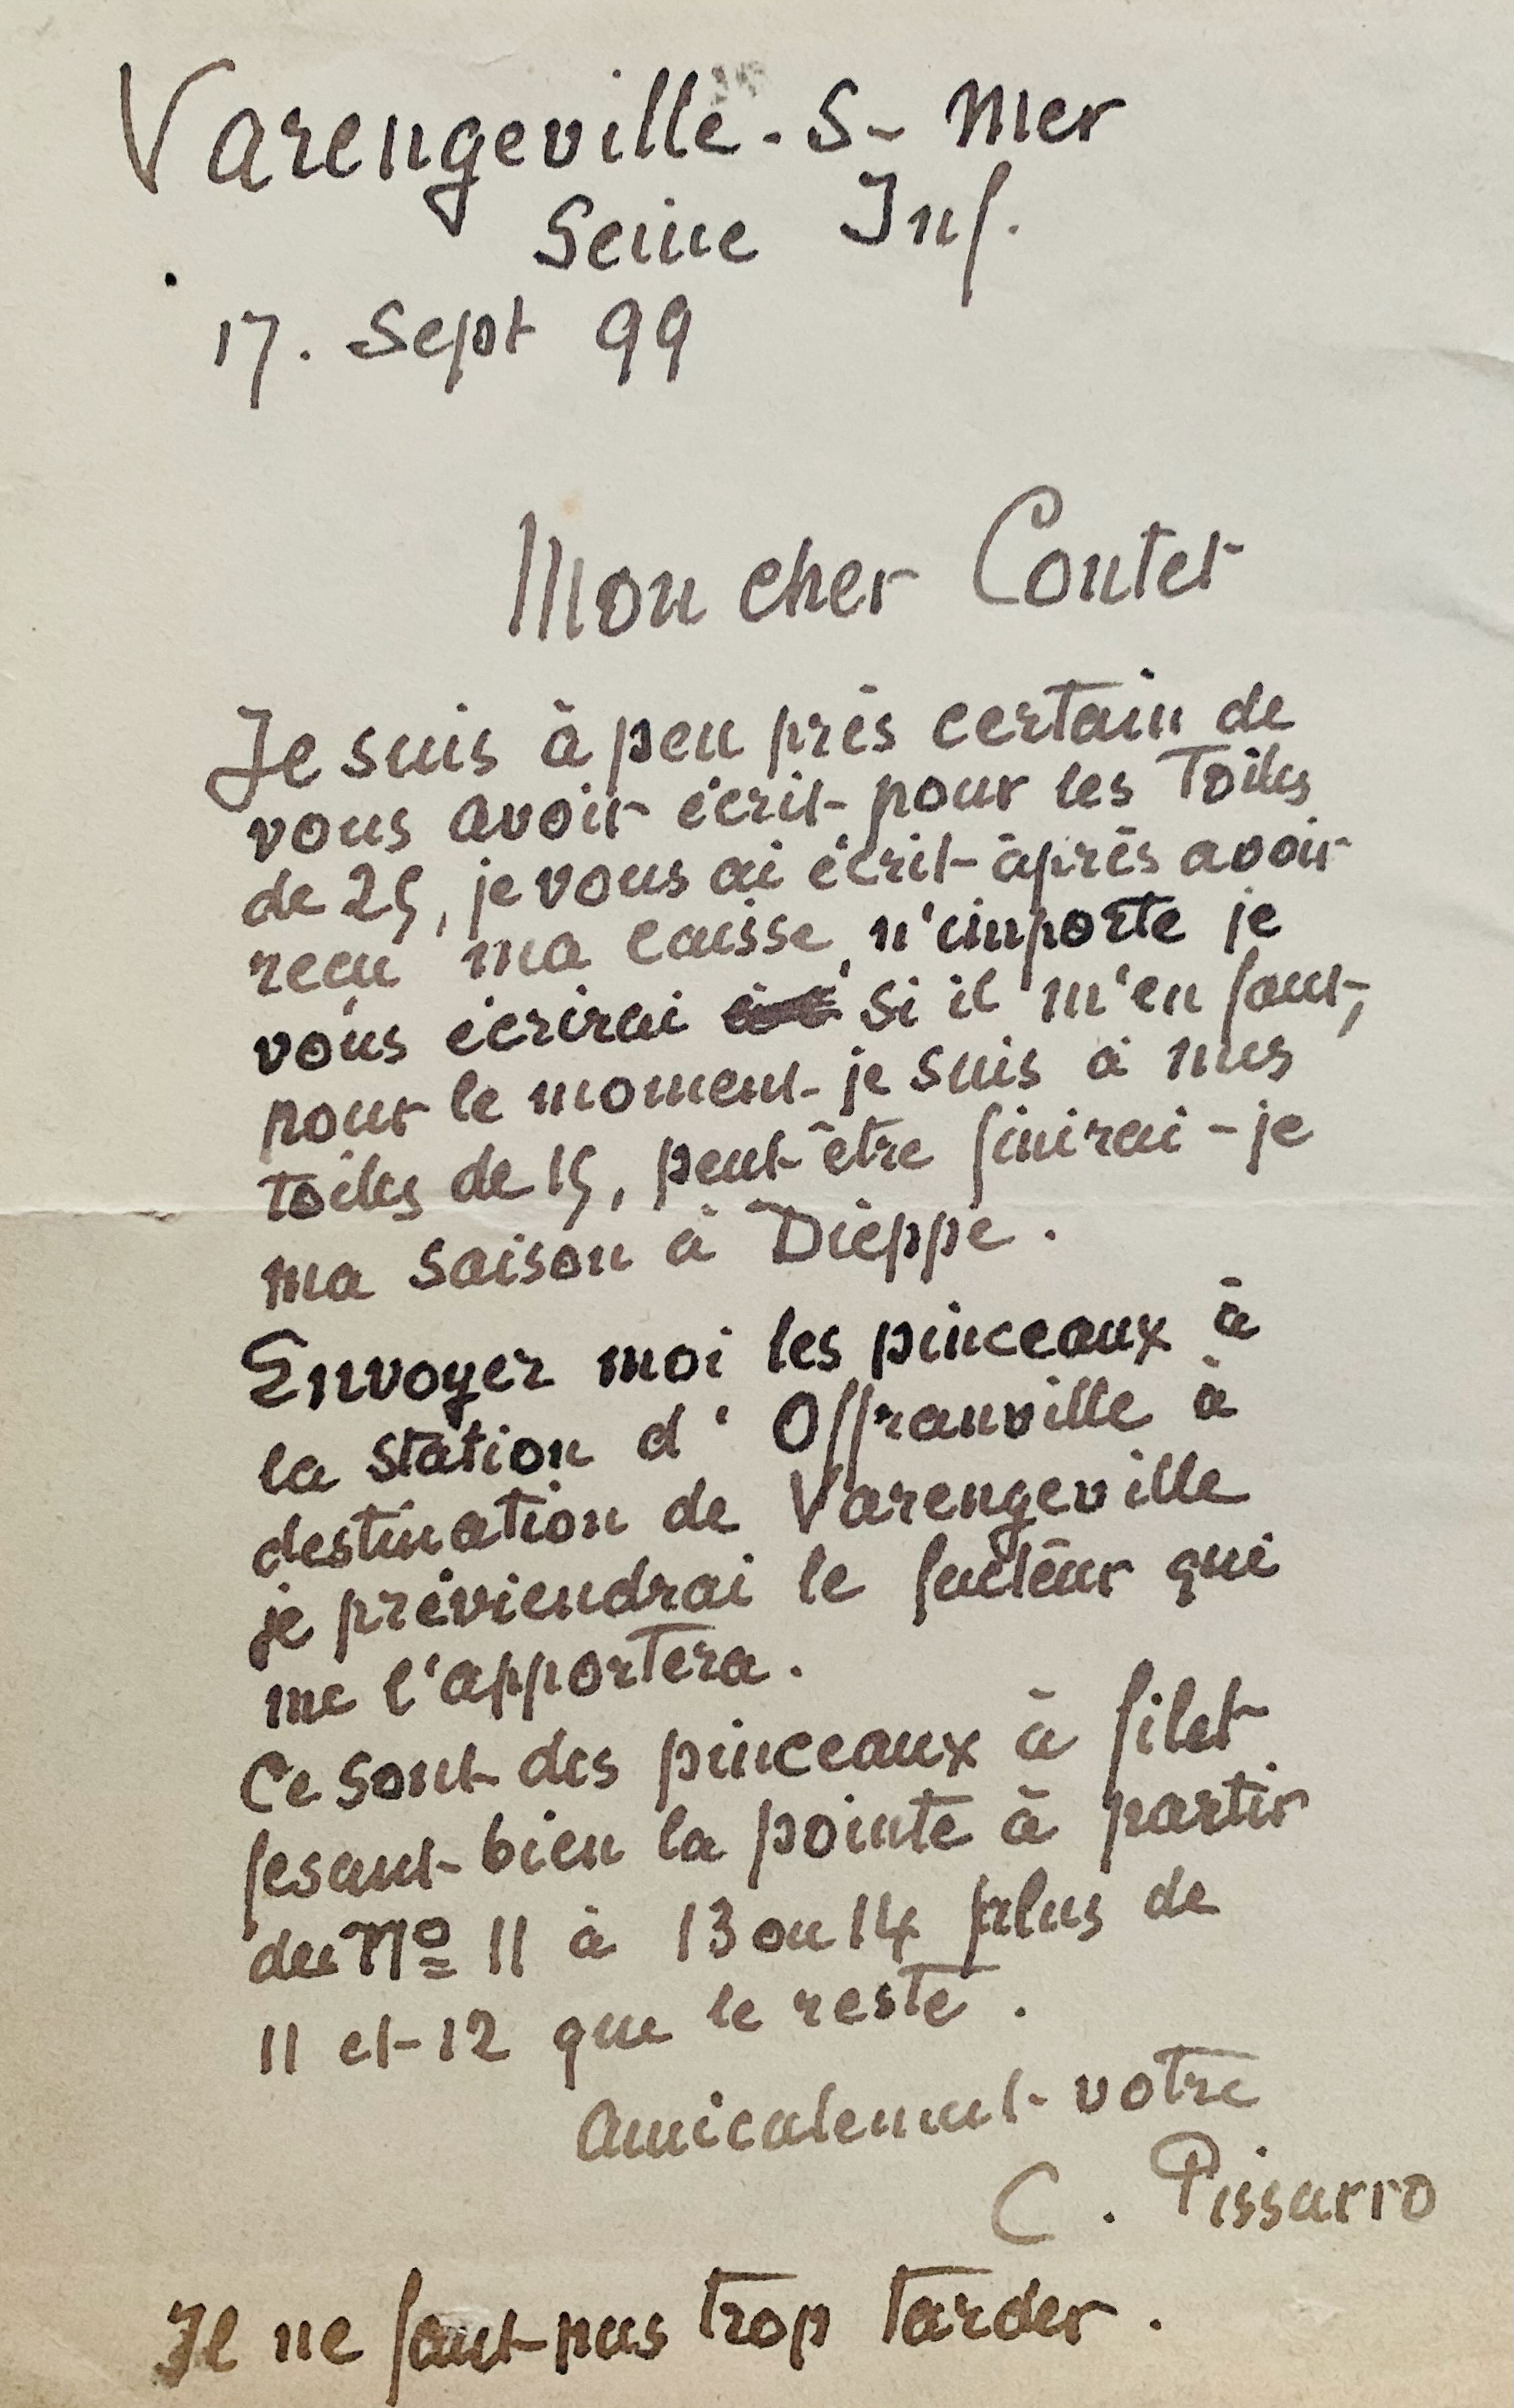 Varengeville - S - Mer
Seine Inf.
17. Sept 99
Mon cher Contet
Je suis à peu près certain de
vous avoir écrit pour les Toiles
de 25, je vous ai écrit àprès avoir
reçu ma caisse, n'importe je
vous écrirai si il m'en faut,
pour le moment je suis à mes
toiles de 15, peut-être finirai-je
ma saison à Dieppe.
Envoyer moi les pinceaux à
la station d'Offranville à
destination de Varengeville
je préviendrai le facteur qui
me l'apportera.
Ce sont des pinceaux à filet
fesant bien la pointe à partir
du No 11 à 13 ou 14 plus de
11 et 12 que le reste.
Amicalement votre
C. Pissarro
Il ne faut pas trop tarder.